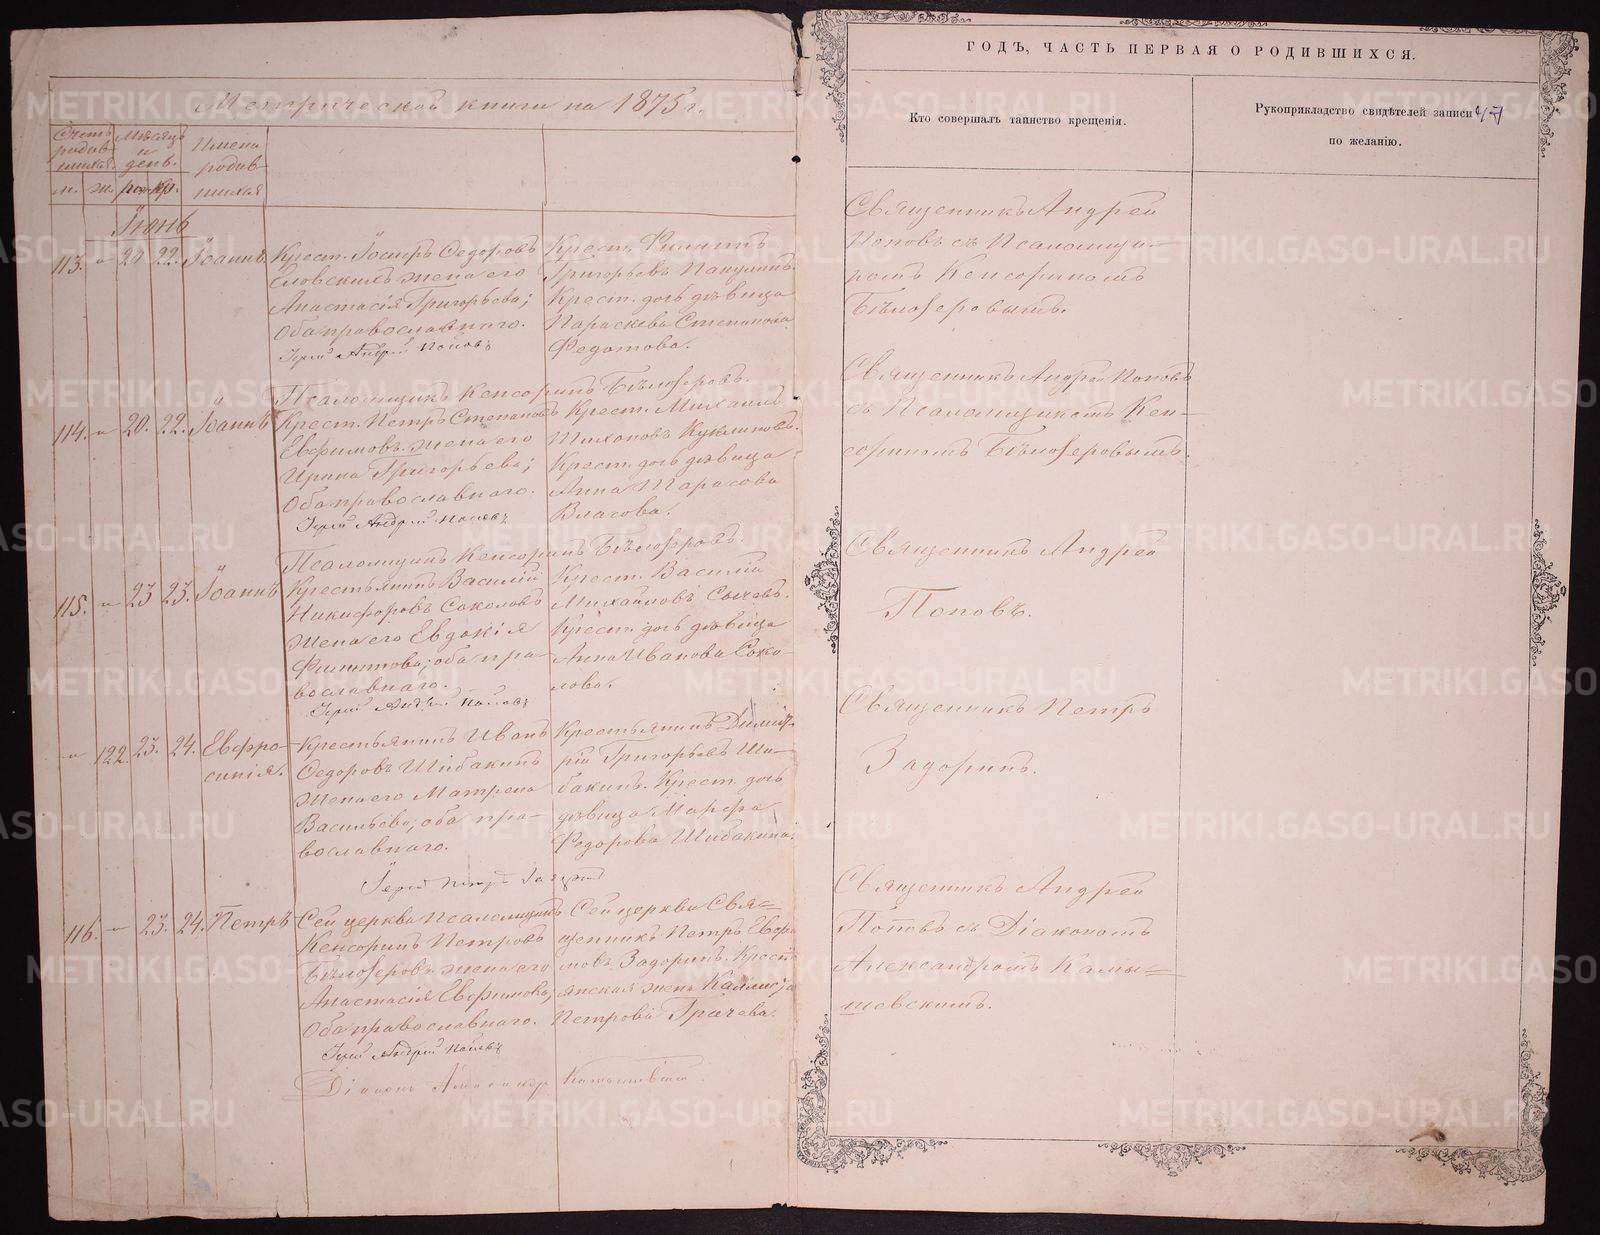 Метрической книги на 1875 г.
Счетъ родив-шихся.
Мѣсяцъ и день.
Имена родив-шихся
м. ж. рож. кр.
Іюнь
113. " 20 22. Іоаннъ
Крест. Іосифъ Федоровъ
Словскихъ жена его
Анастасія Григорьева;
Оба православнаго.
Іерей Андрей Поповъ
Псаломщикъ Кенсоринъ Бѣлозеровъ.
Крест. Филиппъ
Григорьевъ
Крест. дочь дѣвица
Параскева Степанова
Федотова.
114. " 20. 22. Іоаннъ
Крест. Петръ Степановъ
Евфимовъ. жена его
Ирина Григорьева;
Оба православнаго.
Іерей Андрей Поповъ
Псаломщикъ Кенсоринъ Бѣлозеровъ.
Крест. Михаилъ
Тихоновъ Куклиновъ.
Крест. дочь дѣвица
Анна Тарасова
Власова.
115. " 23 23. Іоаннъ
Крестьянинъ Василій
Никифоровъ Соколовъ
Жена его Евдокія
Филиппова; оба пра-
вославнаго.
Іерей Андрей Поповъ
Крест. Василій
Михайловъ Сычевъ.
Крест. дочь дѣвица
Анна Иванова Соко-
лова.
" 122. 23. 24. Евфро-
синія.
Крестьянинъ Иванъ
Федоровъ Шибакинъ
Жена его Матрена
Васильева; оба пра-
вославнаго.
Іерей Петръ Задоринъ
Крестьянинъ Димит-
рій Григорьевъ Ши-
бакинъ. Крест. дочь
дѣвица Марфа
Федорова Шибакина.
116. " 23. 24. Петръ
Сей церкви Псаломщикъ
Кенсоринъ Петровъ
Бѣлозеровъ жена его
Анастасія Евфимова;
Оба православнаго.
Іерей Андрей Поповъ
Діаконъ Александръ Камышевскій
Сей церкви Свя-
щенникъ Петръ Евфи
мовъ Задоринъ. Крестъ
янская жена
Петрова Грачева.
ГОДЪ, ЧАСТЬ ПЕРВАЯ О РОДИВШИХСЯ.
Кто совершалъ таинство крещенія.
Рукоприкладство свидѣтелей записи
по желанію.
47
Священникъ Андрей
Поповъ съ Псаломщи-
комъ Кенсориномъ
Бѣлозеровымъ.
Священникъ Андрей Поповъ
съ Псаломщикомъ Кен-
сориномъ Бѣлозеровымъ.
Священникъ Андрей
Поповъ.
Священникъ Петръ
Задоринъ.
Священникъ Андрей
Поповъ съ Діакономъ
Александромъ Камы-
шевскимъ.
METRIKI.GASO-URAL.RU